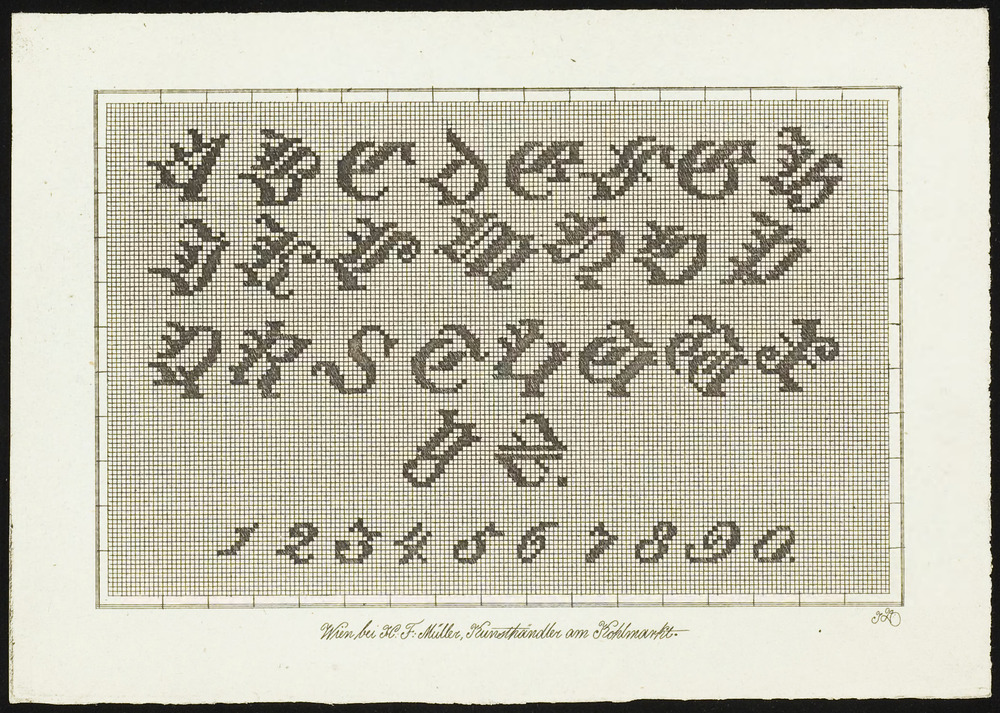 A B C D E F G H
I K L M N O P
Q R S T U V W X
Y Z.
1 2 3 4 5 6 7 8 9 0.
Wien, bei H. F. Müller, Kunsthändler am Kohlmarkt.